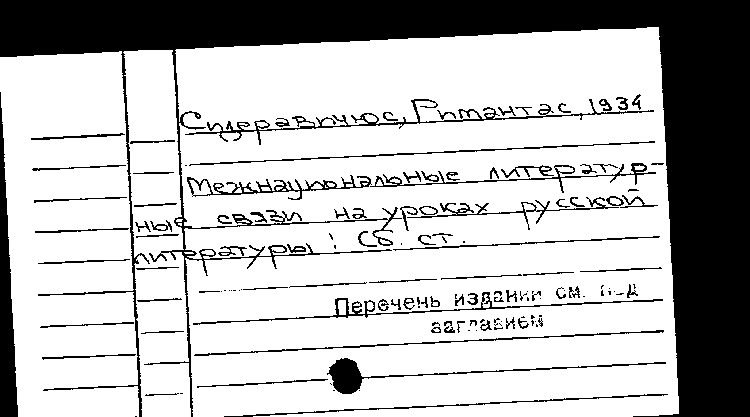 Сидеравичюс, Римантас, 1934
Межнациональные литератур-
ные связи на уроках русской
литературы : Сб. ст.
Перечень изданий см. под
заглавием